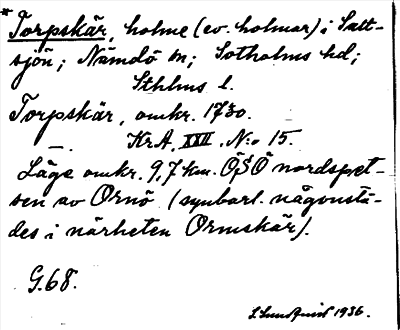 * Torpskär, holme (ev. holmar) i Salt-
sjön; Nämdö sn; Sotholms hd;
Sthlms l.
Torpskär, omkr. 1730.
—. KrA, XXII. N:o 15.
Läge omkr. 9,7 km. ÖSÖ nordspet-
sen av Ornö (synbarl. någonstä-
des i närheten Ormskär).
G.68.
S. Lundqvist 1936.